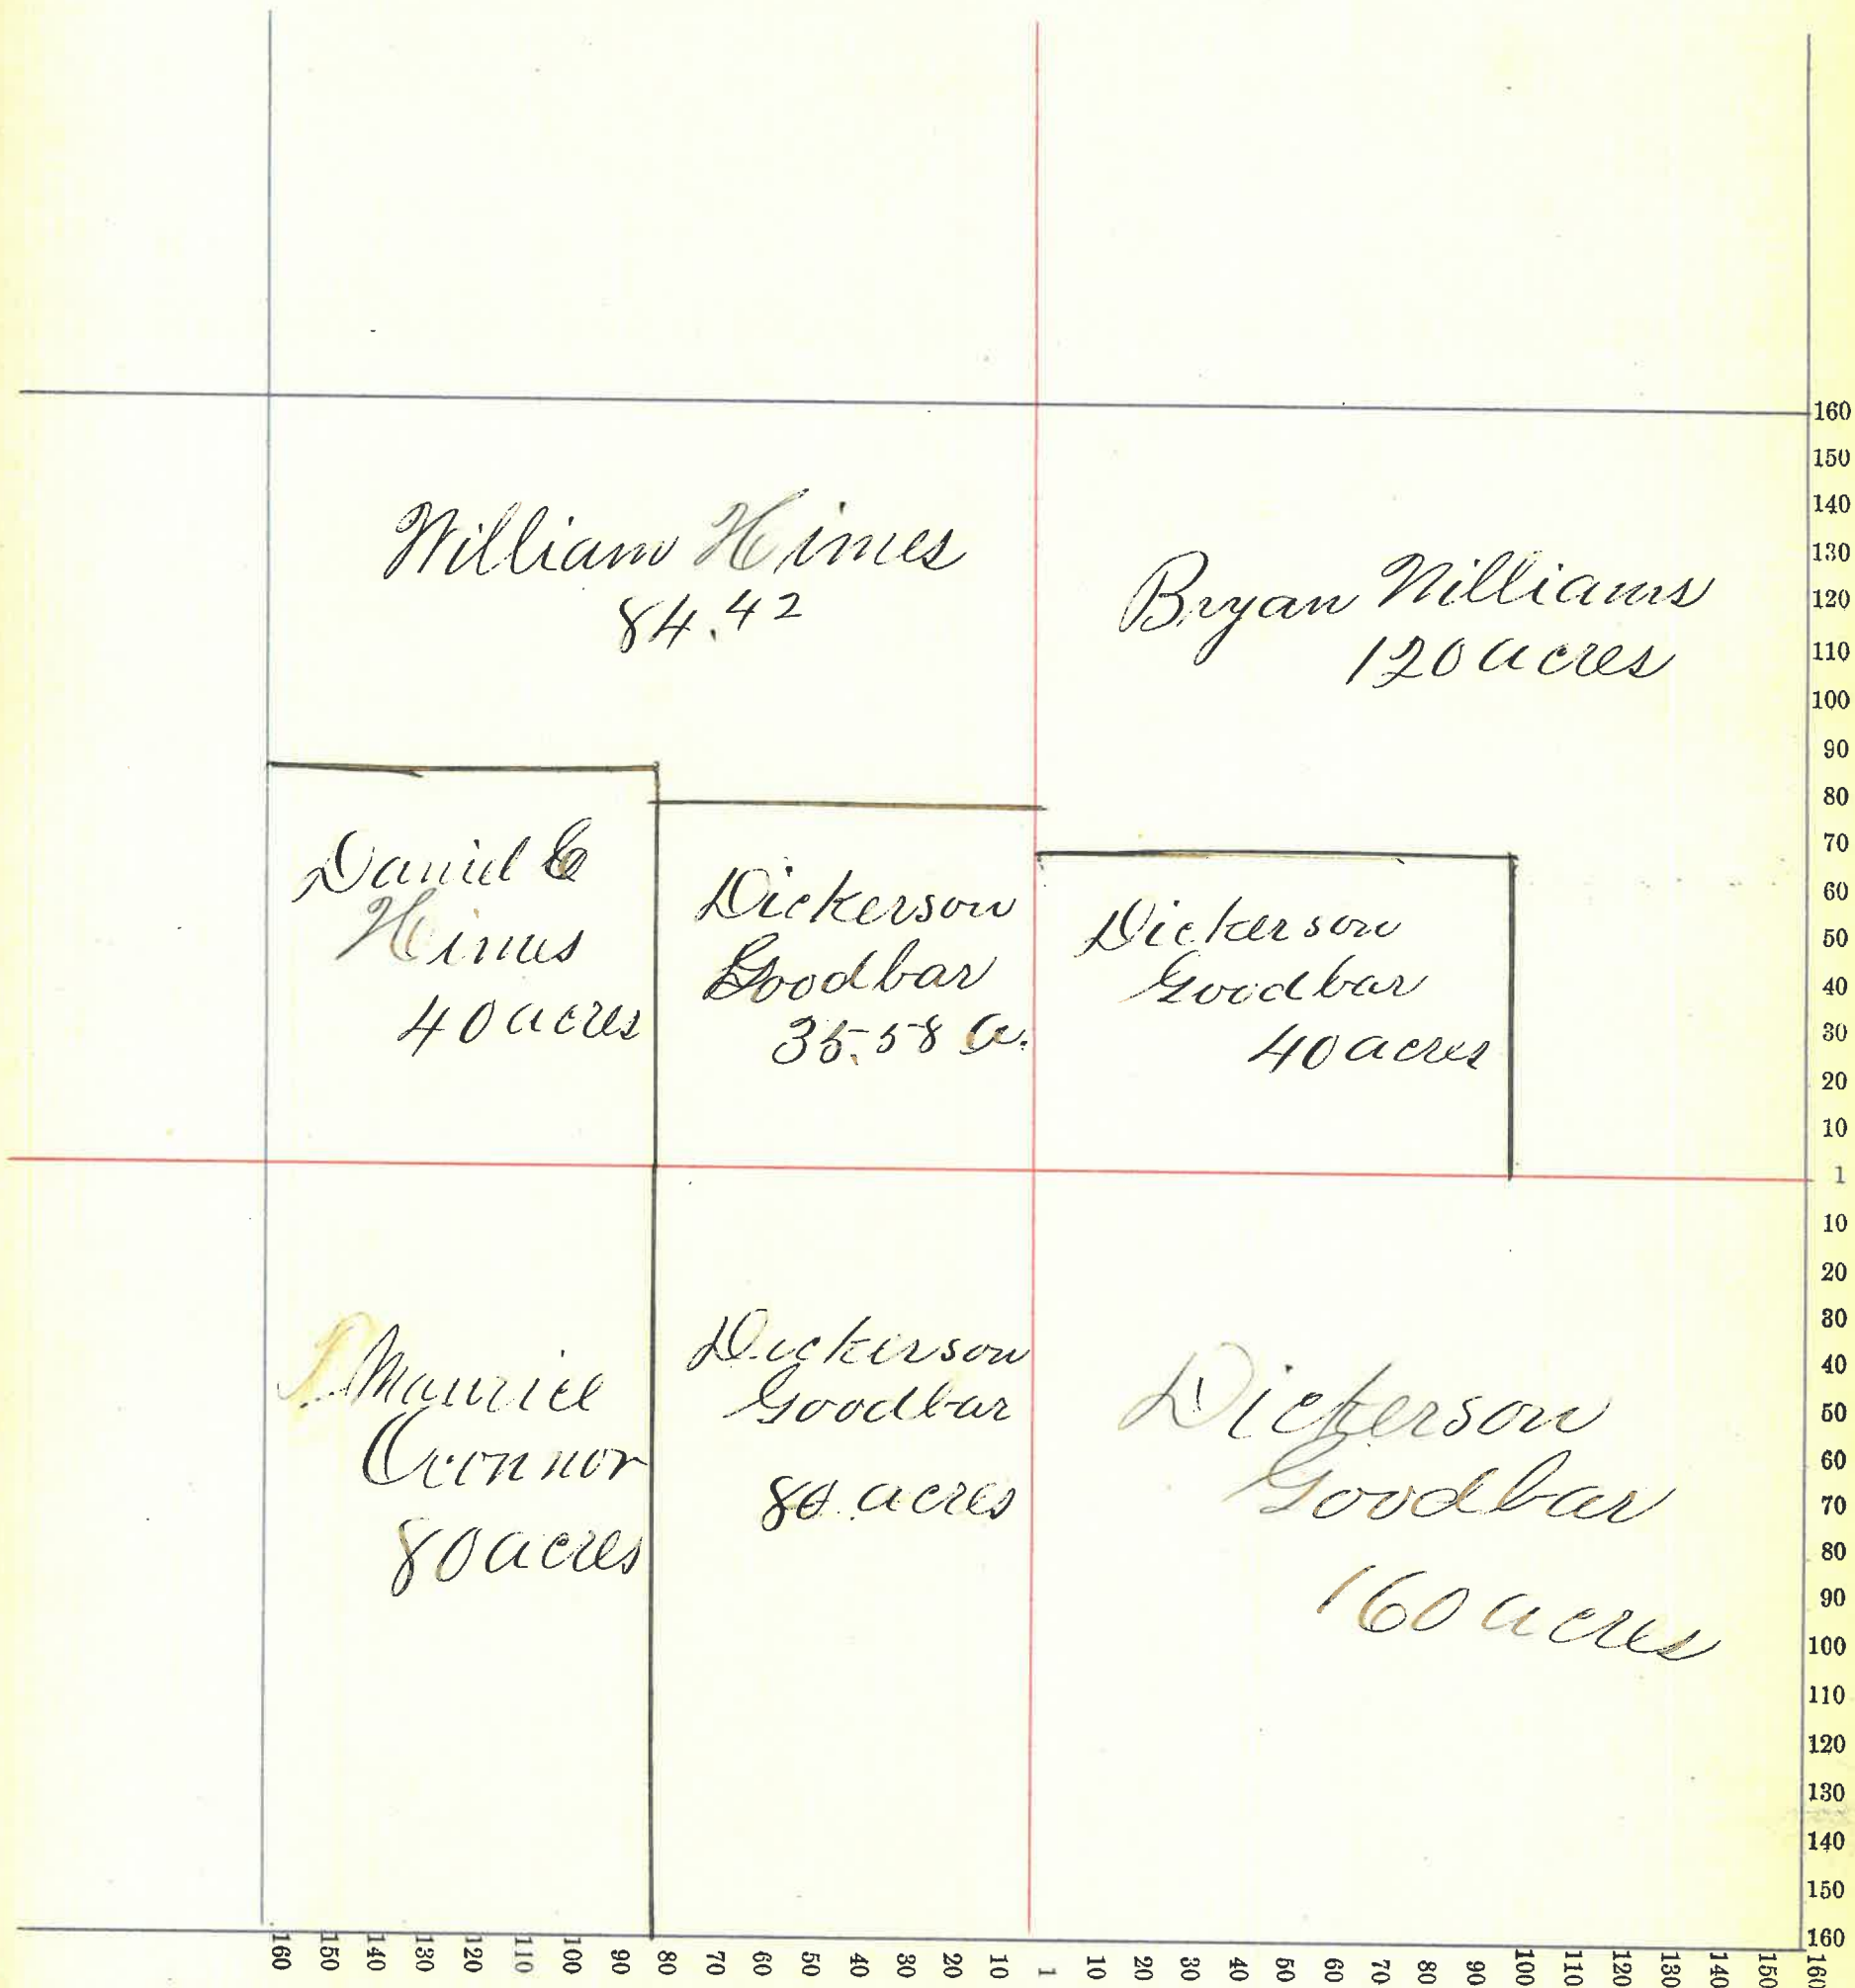 William Himes
84.42
Bryan Williams
120 acres
Daniel C
Himes
40 acres
Dickerson
Goodbar
35.58 a.
Dickerson
Goodbar
40 acres
Maurice
Oconnor
80 acres
Dickerson
Goodbar
80 acres
Dickerson
Goodbar
160 acres
160
150
140
130
120
110
100
90
80
70
60
50
40
30
20
10
1
10
20
30
40
50
60
70
80
90
100
110
120
130
140
150
160
160 150 140 130 120 110 100 90 80 70 60 50 40 30 20 10 1 10 20 30 40 50 60 70 80 90 100 110 120 130 140 150 160